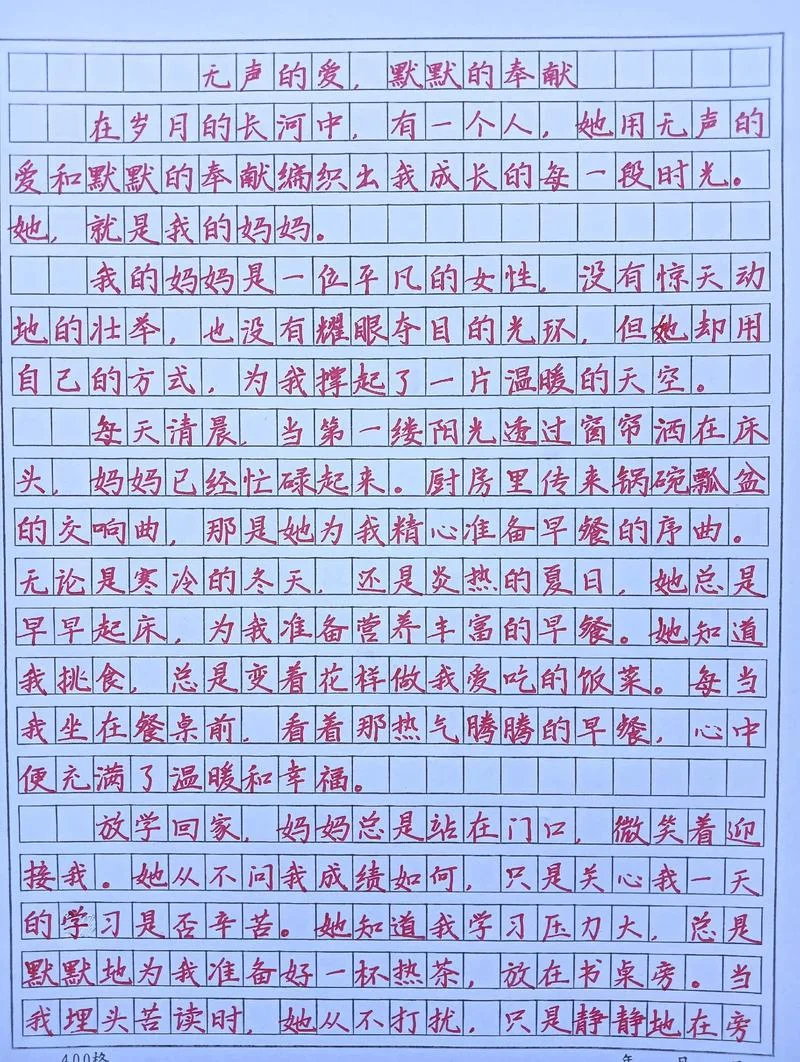 无声的爱，默默的奉献
在岁月的长河中，有一个人，她用无声的
爱和默默的奉献编织出我成长的每一段时光。
她，就是我的妈妈。
我的妈妈是一位平凡的女性，没有惊天动
地的壮举，也没有耀眼夺目的光环，但她却用
自己的方式，为我撑起了一片温暖的天空。
每天清晨，当第一缕阳光透过窗帘洒在床
头，妈妈已经忙碌起来。厨房里传来锅碗瓢盆
的交响曲，那是她为我精心准备早餐的序曲。
无论是寒冷的冬天，还是炎热的夏日，她总是
早早起床，为我准备营养丰富的早餐。她知道
我挑食，总是变着花样做我爱吃的饭菜。每当
我坐在餐桌前，看着那热气腾腾的早餐，心中
便充满了温暖和幸福。
放学回家，妈妈总是站在门口，微笑着迎
接我。她从不问我成绩如何，只是关心我一天
的学习是否辛苦。她知道我学习压力大，总是
默默地为我准备好一杯热茶，放在书桌旁。当
我埋头苦读时，她从不打扰，只是静静地在旁
400格 年 月